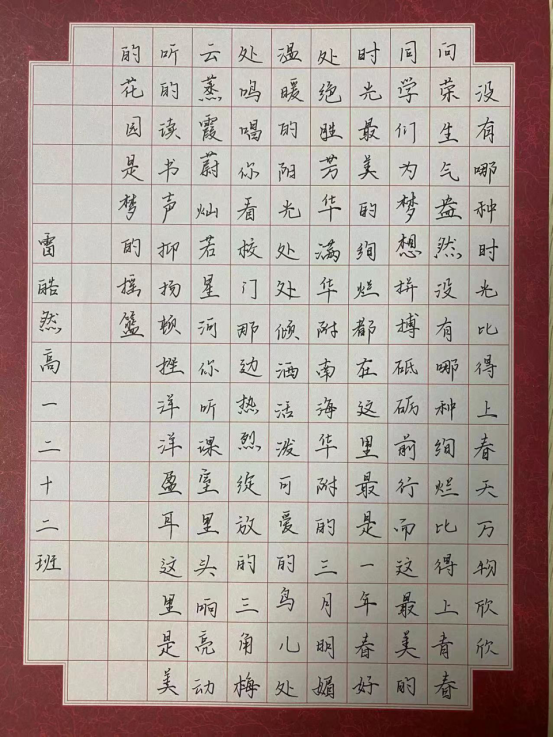 没有哪种时光比得上春天万物欣欣
向荣生气盎然没有哪种绚烂比得上青春
同学们为梦想拼搏砥砺前行而这最美的
时光最美的绚烂都在这里最是一年春好
处绝胜芳华满华附南海华附的三月明媚
温暖的阳光处处倾洒活泼可爱的鸟儿处
处鸣唱你看校门那边热烈绽放的三角梅
云蒸霞蔚灿若星河你听课室里头响亮动
听的读书声抑扬顿挫洋洋盈耳这里是美
的花园是梦的摇篮
雷皓然高一二十二班